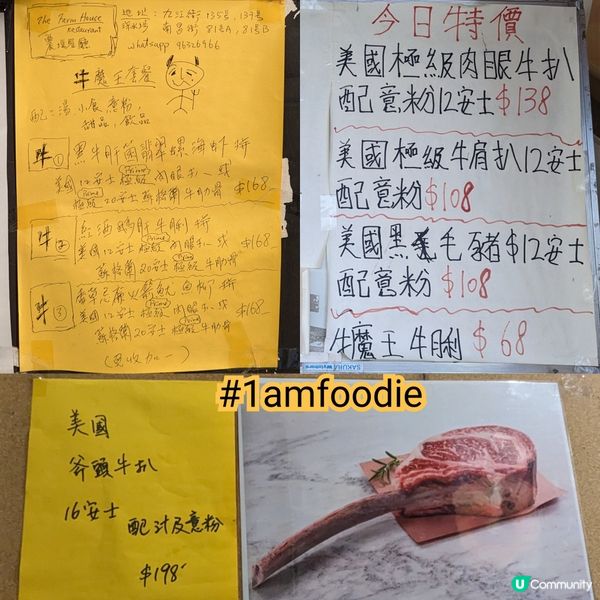 The Farm House
restaurant
農場餐廳
地址: 九江街135號, 139號
深水埗 南昌街81號A, 81號B
Whatsapp 96326966
牛魔王套餐
配: 湯, 小食, 意粉,
甜品, 飲品
牛①
美國12安士 Prime 極級 肉眼扒 或
極級 20安士 蘇格蘭牛肋骨 $168
牛②
紅酒鵝肝牛脷拼
美國12安士 Prime 極級 肉眼扒 或 $168
蘇格蘭20安士 極級 牛肋骨
牛③
美國12安士 Prime 極級 肉眼扒 或 $168
蘇格蘭20安士 極級 牛肋骨
(免收加一)
今日特價
美國極級肉眼牛扒
配意粉12安士$138
美國極級牛肩扒12安士
配意粉$108
美國黑毛豬扒12安士
配意粉 $108
牛魔王牛脷 $68
SAKURA
#1amfoodie
美國
斧頭牛扒
16安士 配汁及意粉
$198
U Community